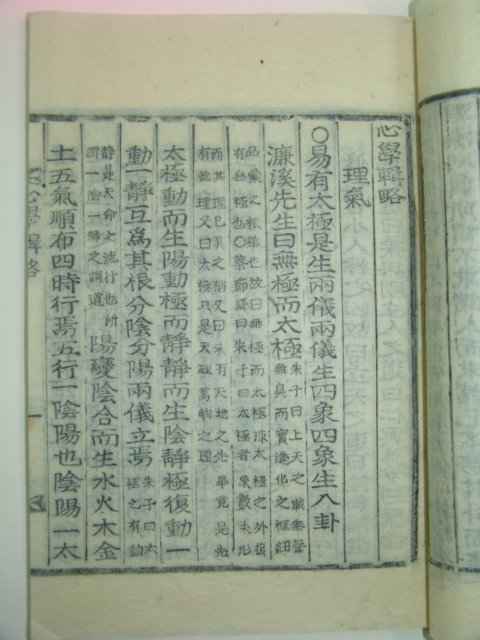 心學輯略
理氣
○易有太極是生兩儀兩儀生四象四象生八卦
濂溪先生曰無極而太極朱子曰上天之載無聲
無臭而實造化之樞紐
品彙之根柢也故曰無極而太極非太極之外復
有無極也○蔡節齋曰朱子曰太極者象數未形
而其理已具之稱又曰未有天地之先畢竟是先
有此理又曰太極只是天地萬物之理
太極動而生陽動極而靜靜而生陰靜極復動一
動一靜互爲其根分陰分陽兩儀立焉朱子曰太
極之有動
靜是天命之流行也所
謂一陰一陽之謂道陽變陰合而生水火木金
土五氣順布四時行焉五行一陰陽也陰陽一太
心學輯略
一